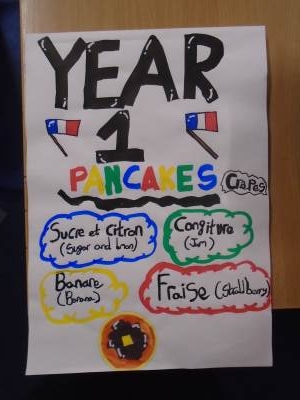 YEAR
1
PANCAKES
Crapes
Sucre et Citron
(Sugar and lmon)
Congiture
(Jam)
Banane
(Banana)
Fraise (Strallburry)